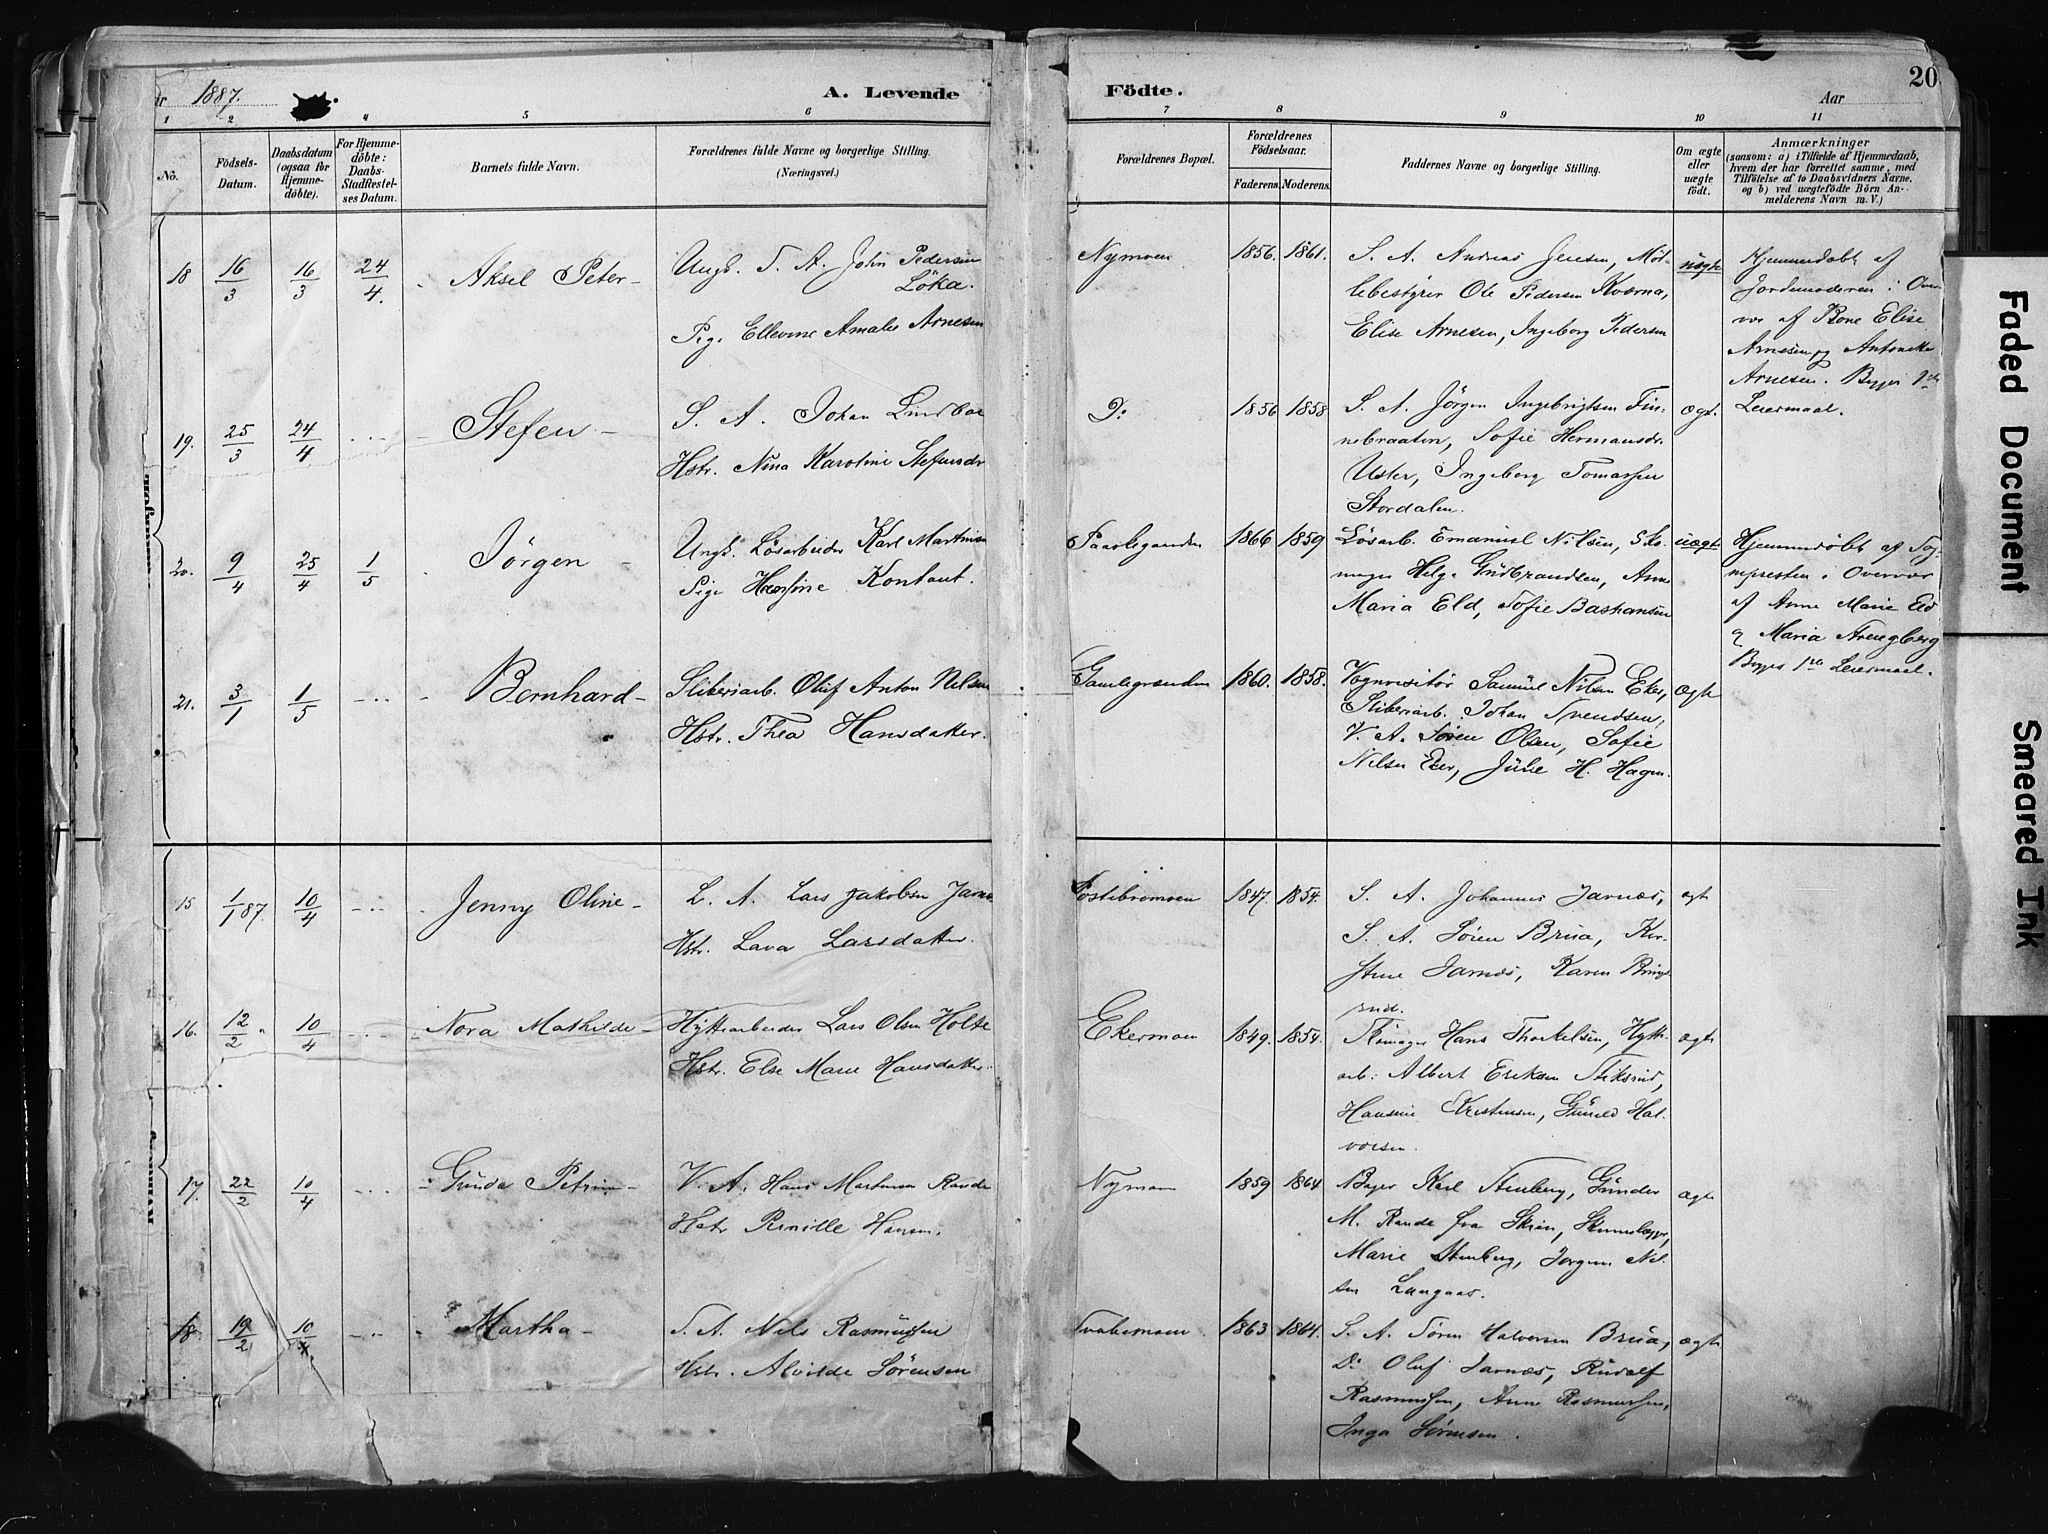 Aar 1887.
A. Levende
Födte.
Aar
20
1 2 4 5 6 7 8 9 10 11
No.
Födsels-Datum.
Daabsdatum (ogsaa for Hjemmedöbte).
For Hjemmedöbte: Daabs-Stadfæstelses Datum.
Barnets fulde Navn.
Forældrenes fulde Navne og borgerlige Stilling. (Næringsvei.)
Forældrenes Bopæl.
Forældrenes Födselsaar.
Faderens. Moderens.
Faddernes Navne og borgerlige Stilling.
Om ægte eller uægte födt.
Anmærkninger
(saasom: a) i Tilfælde af Hjemmedaab, hvem der har forrettet samme, med Tilföielse af to Daabsvidners Navne. og b) ved uægtefödte Börn Anmelderens Navn m. V.)
18 16/3 16/3 24/4. Aksel Peter
Ungk. S. A. John Pedersen
Löka.
Pige Ellevine Amalie Arnesen
Nymoen 1856. 1861.
S. A. Andreas Jensen, Möl-
lebestyrer Ole Pedersen Kværna,
Elise Arnesen, Ingeborg Pedersen
uægte
Hjemmedöbt af
Jordemoderen i Over-
vær af Kone Elise
Arnesen og Antonette
Arnesen. Begges 1ste
Leiermaal.
19. 25/3 24/4 Stefen
S. A. Johan Lindboe
Hstr. Nina Karoline Stefensdr
Do 1856 1858
S. A. Jörgen Ingebrigtsen Fin-
nebraaten, Sofie Hermansdr.
Uster, Ingeborg Tomassen
Stordalen.
ægt.
20. 9/4 25/4 1/5 Jörgen
Ungk. Lösarbeider Karl Martinsen
Pige Hansine Kontant.
1866 1859
Lösarb. Emanuel Nilsen, Sko-
mager Helge Gudbrandsen, Anne
Maria Eld, Sofie Bashansen
uægte
Hjemmedöbt af Sog-
nepresten i Overvær
af Anne Marie Eld
og Maria Strengberg
Begges 1ste Leiermaal.
21. 3/1 1/5 Bernhard
Sliberiarb. Oluf Anton Nilsen
Hstr. Thea Hansdatter.
Gamlegrænden 1860. 1858.
Vognvisitör Samuel Nilsen Eker,
Sliberiarb. Johan Svendsen,
V. A. Sören Olsen, Sofie
Nilsen Eker, Julie H. Hagen
ægte
15 1/1 87. 10/4 Jenny Oline
L. A. Lars Jakobsen Jarnæs
Hstr. Lava Larsdatter.
1847. 1854.
S. A. Johannes Jarnæs,
S. A. Sören Brua, Kir-
stine Jarnæs, Karen Brings-
rud.
ægte
16. 12/2 10/4 Nora Mathilde
Hyttearbeider Lars Olsen Holte
Hstr. Else Marie Hansdatter.
Ekermoen 1849. 1854.
Skomager Hans Thorkelsen, Hytte-
arb. Albert Eriksen Stiksrud,
Hansine Kristensen, Gunild Hal-
vorsen.
ægte
17. 22/2 10/4 Gunda Petrine
V. A. Hans Martinsen Rønde
Hstr Pernille Hansen.
Nymoen 1859 1864
Bager Karl Stenberg, Gunder
M. Rande fra Skien,
Marie Stenberg, Jörgen Nil-
sen Langaas.
ægte
18. 19/2 10/4 Martha
S. A. Nils Rasmussen
Hstr. Alvilde Sörensen
1863 1864.
S. A. Sören Halversen Brua,
Do Oluf Jarnæs, Rudolf
Rasmussen, Anne Rasmussen,
Inga Sörensen.
ægte
Faded Document
Smeared Ink